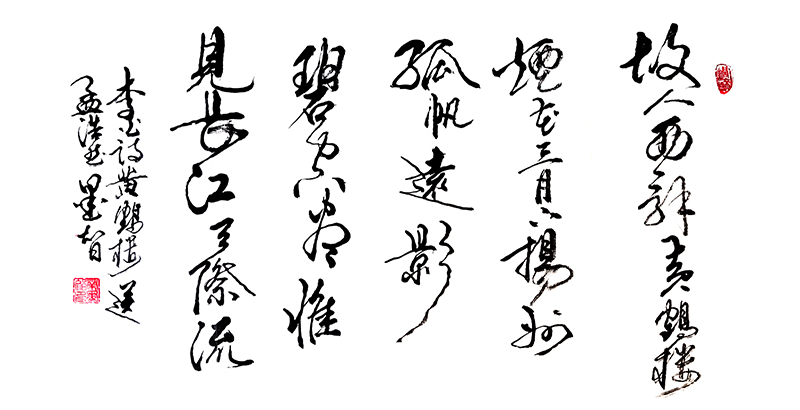 故人西辞黄鹤楼
煙花三月下揚州
孤帆遠影
碧空盡惟
見長江天際流
李白詩黄鶴楼送
孟浩然